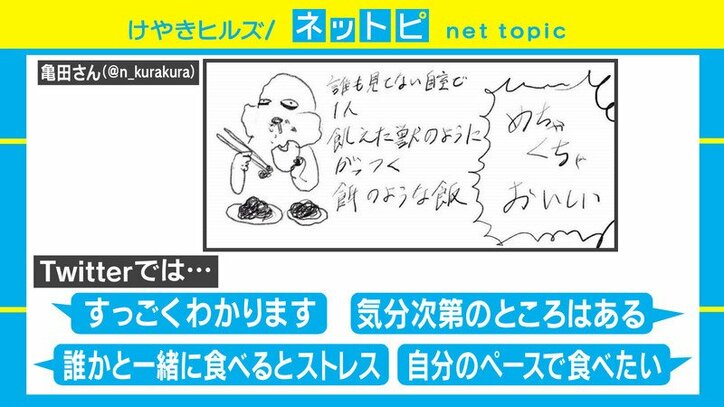 けやきヒルズ/ ネットピ net topic
亀田さん(@n_kurakura)
誰も見てない自室で
1人
飢えた獣のように
がっつく
餌のような飯
めちゃ
くちゃ
おいしい
Twitterでは…
すっごくわかります
気分次第のところはある
誰かと一緒に食べるとストレス
自分のペースで食べたい